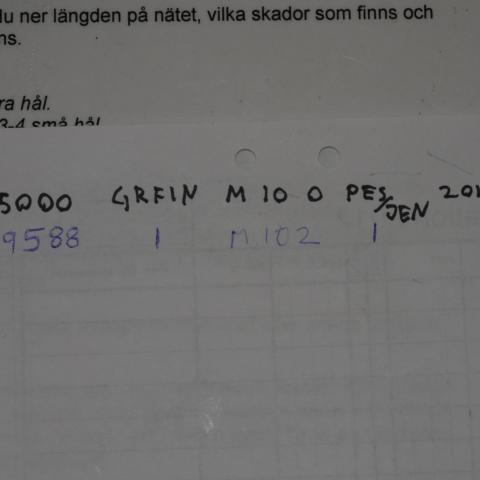 du ner längden på nätet, vilka skador som finns och
ns.
ra hål.
3-4 små hål
5000 GRFIN M 10 0 PES/JEN 201
9588 1 M 102 1